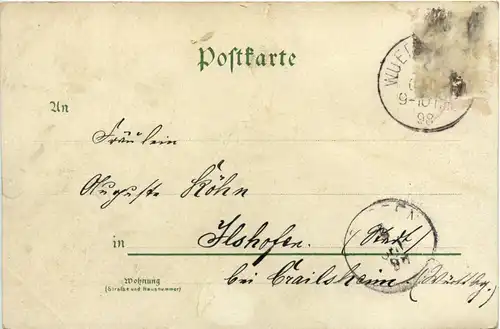 Postkarte
WUE
9-10
98
An
Fräulein
Auguste Köhn
in Ilshofen. (Stadt)
bei Crailsheim. (Württbg.)
Wohnung
(Straße und Hausnummer)